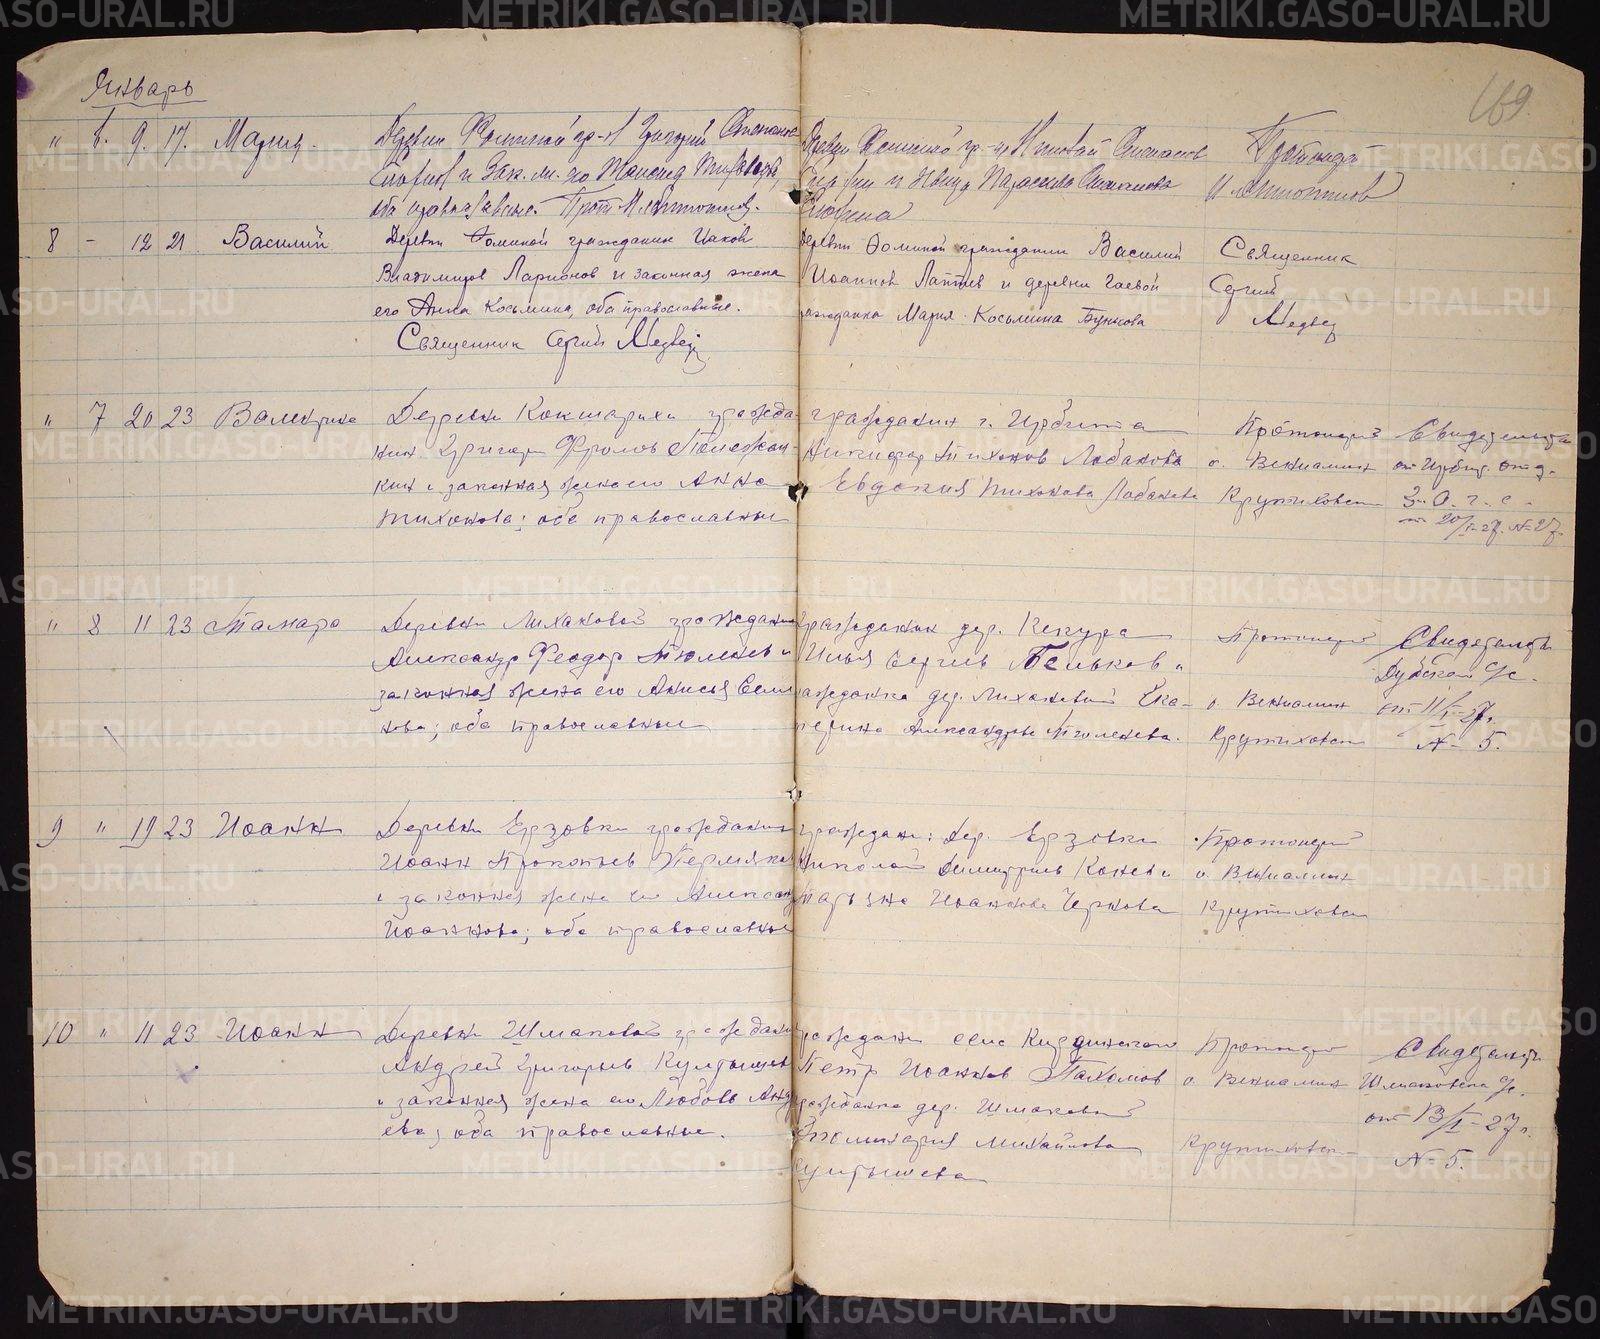 Январь
169.
" 6. 9. 17. Мария.
Деревни Фоминой гр-н Григорий
и зак. ж. его
оба православные. Прот.
Деревни Фоминой гр-н
и девица Параскева
Протоиерей
8 - 12 21 Василий
Деревни Фоминой гражданин Иаков
Владимиров Ларионов и законная жена
его Анна Косьмина, оба православные.
Священник Сергий Медвед
Деревни Фоминой гражданин Василий
Иоаннов Лаптев и деревни Гаевой
гражданка Мария Косьмина Бункова
Священник
Сергий
Медвед
" 7 20 23 Валентина
Деревни Кокшарихи гражда-
нин Григорий Фролов
кин и законная жена его Анна
Тихонова; оба православные
гражданин г. Ирбита
Никифор Тихонов Лобанов
Евдокия Тихонова Лобанова
Протоиерей
о. Вениамин
Крутиховск
Свидетельство
от Ирбит. отд.
З.А.Г.С.
от 20/I-27. № 27.
" 8 11 23 Тамара
Деревни Лихановой гражданин
Александр Феодор. Тюленев и
законная жена его Анисья Семе
нова; оба православные
гражданин дер. Кекура
Илья Сергиев Пеньков и
гражданка дер. Лихановой Ека-
терина Александрова Тюленева.
Протоиерей
о. Вениамин
Крутиховск
Свидетельство
Дубской с/с.
от 11/I-27 г.
№ 5.
9 " 19 23 Иоанн
Деревни Ерзовки гражданин
Иоанн Прокопьев Пермяков
и законная жена его Александ
Иоаннова; оба православные
граждане: дер. Ерзовки
Николай Димитриев Конев и
Иоаннова Чернова
Протоиерей
о. Вениамин
Крутиховск
10 " 11 23 Иоанн
Деревни Шмаковой гражданин
Андрей Григорьев Култышев
и законная жена его Любовь Анд
ева; оба православные.
гражданин села Киргинского
Петр Иоаннов Пахомов
гражданка дер. Шмаковой
Михайлова
Култышева
Протоиерей
о. Вениамин
Крутиховск
Свидетельство
Шмаковского с/с.
от 13/I-27 г.
№ 5.
METRIKI.GASO-URAL.RU